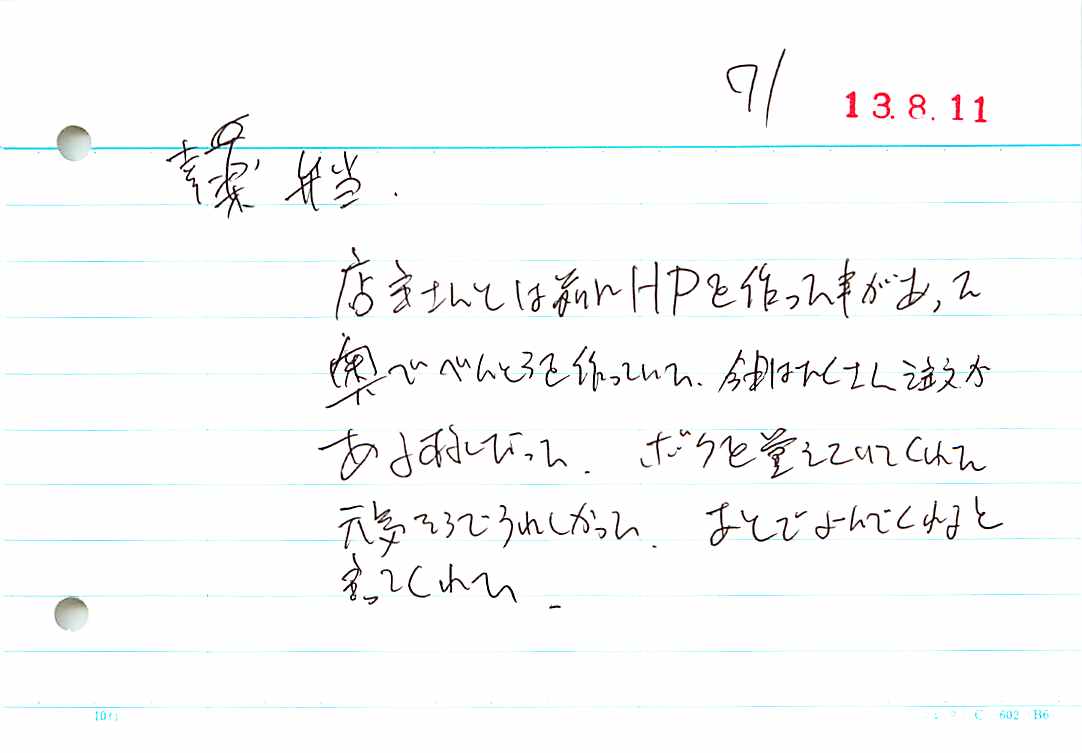 71
13.8.11
弁当.
店主さんとは前にHPを作った事があって
奥でべんとうを作っていた、今日はたくさん注文が
ある様だった. ボクを覚えていてくれた
元気そうでうれしかった. あとでよんでくれると
言ってくれた.
C 602 B6